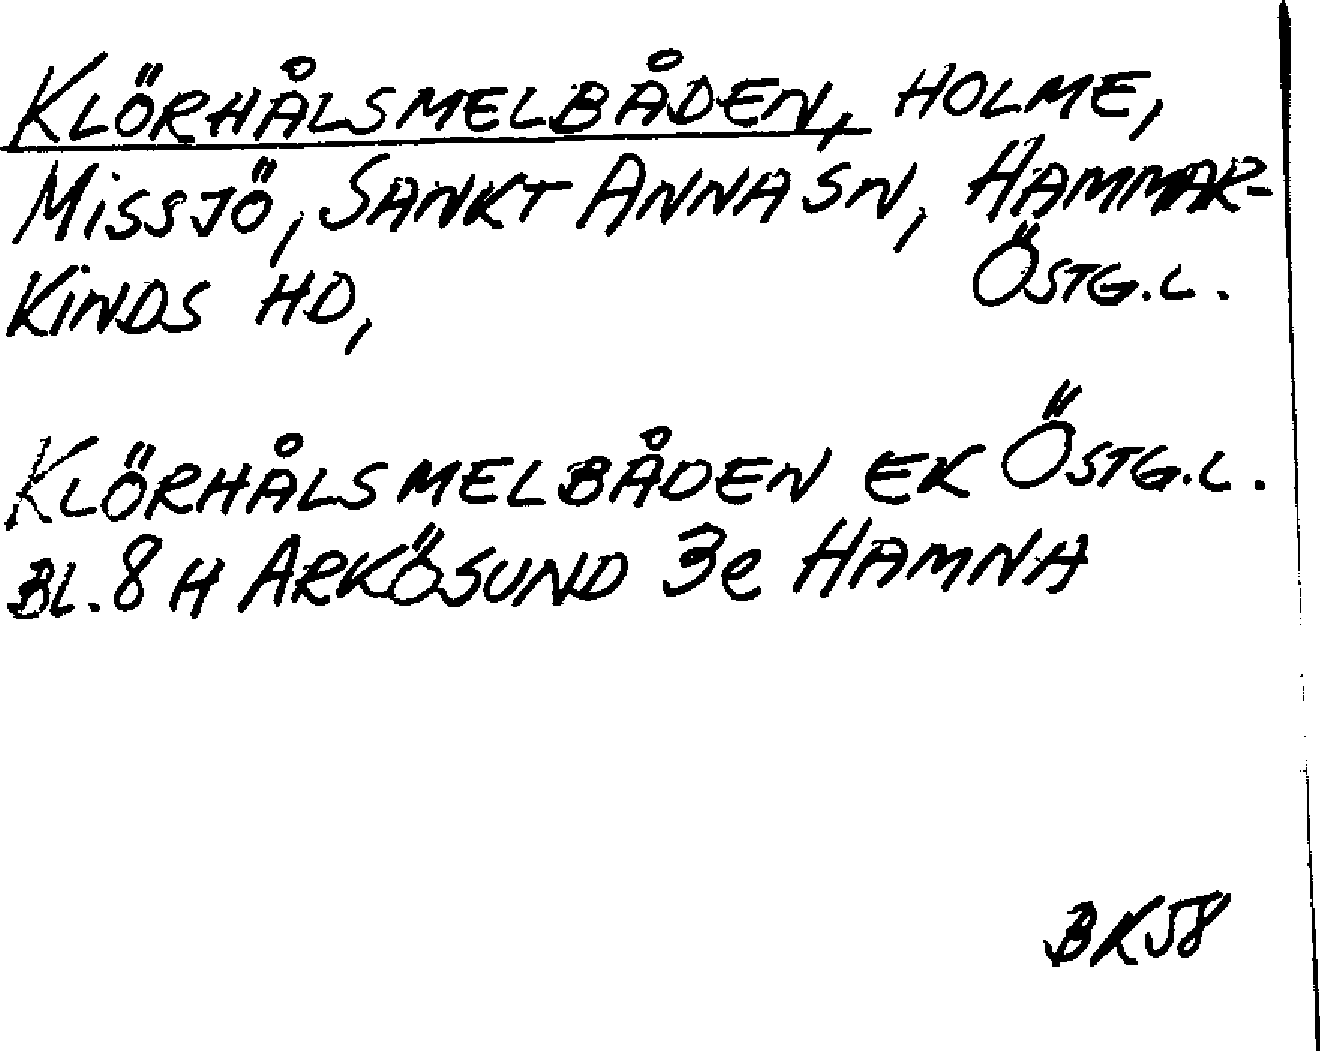 KLÖRHÅLSMELBÅDEN, HOLME,
MISSJÖ, SANKT ANNA SN, HAMMAR-
KINDS HD, ÖSTG.L.
KLÖRHÅLSMELBÅDEN EK ÖSTG.L.
BL. 8 H ARKÖSUND 3e HAMNA
BK58